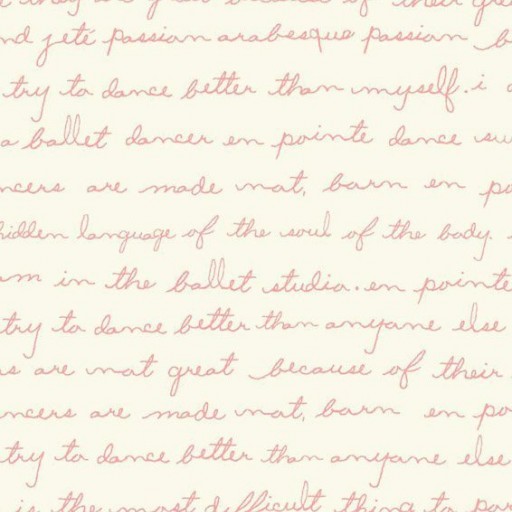 they are great because of their gre
nd jeté passion arabesque passion b
try to dance better than myself. i d
a ballet dancer en pointe dance su
ncers are made not, born en po
hidden language of the soul of the body.
am in the ballet studio. en pointe
try to dance better than anyone else
s are not great because of their
ncers are made not, born en po
try to dance better than anyone else
is the most difficult thing to por